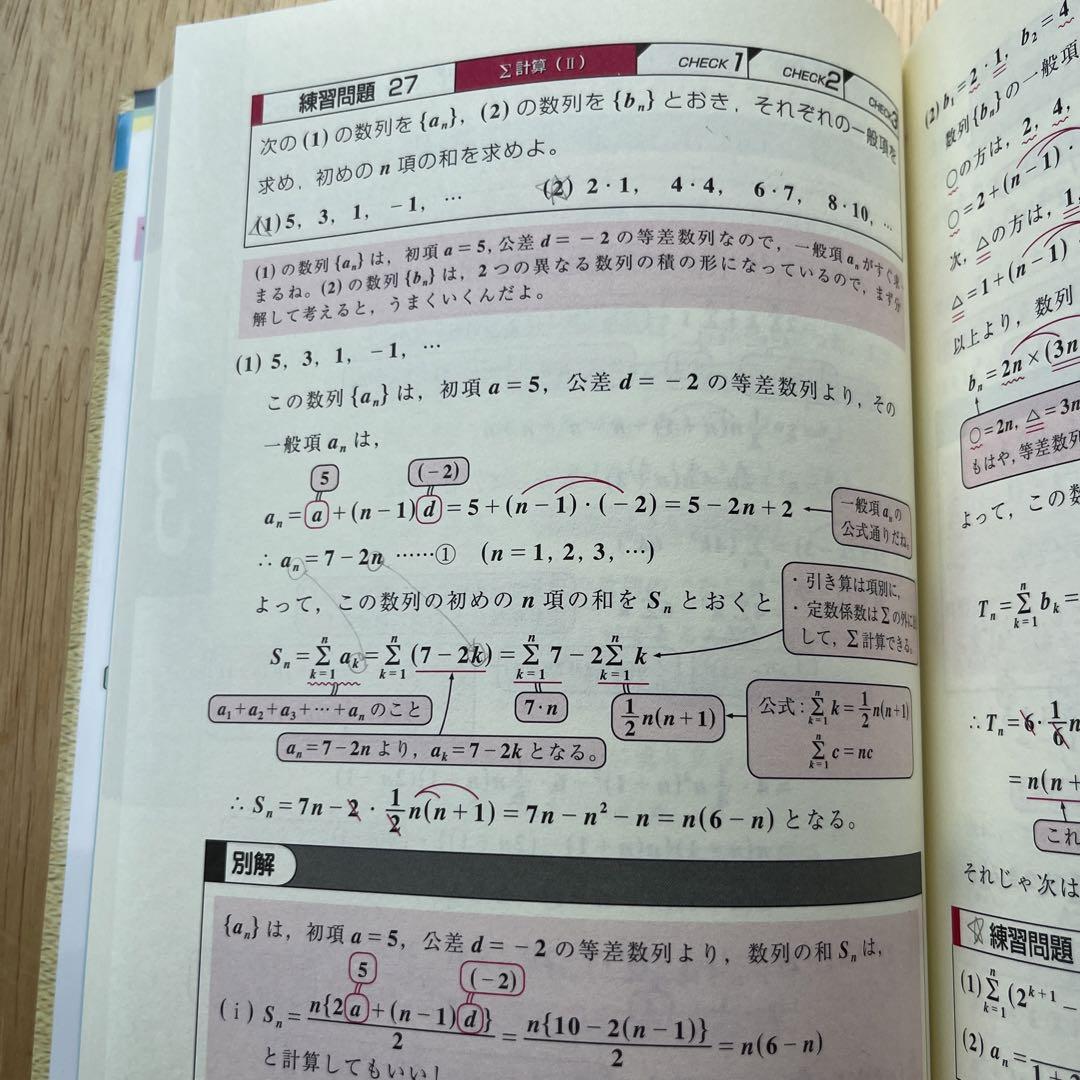 練習問題 27
Σ計算(Ⅱ)
CHECK 1
CHECK2
CHECK3
次の(1)の数列を{aₙ}, (2)の数列を{bₙ}とおき, それぞれの一般項を
求め, 初めの n 項の和を求めよ。
(1) 5, 3, 1, −1, … (2) 2・1, 4・4, 6・7, 8・10, …
(1)の数列{aₙ}は, 初項 a=5, 公差 d=−2 の等差数列なので, 一般項 aₙ がすぐ求
まるね。(2)の数列{bₙ}は, 2つの異なる数列の積の形になっているので, まず分
解して考えると, うまくいくんだよ。
(1) 5, 3, 1, −1, …
この数列{aₙ}は, 初項 a=5, 公差 d=−2 の等差数列より, その
一般項 aₙ は,
5 (−2)
aₙ=a+(n−1)d=5+(n−1)・(−2)=5−2n+2
一般項 aₙ の
公式通りだね。
∴ aₙ=7−2n ……① (n=1, 2, 3, …)
よって, この数列の初めの n 項の和を Sₙ とおくと
・引き算は項別に,
・定数係数はΣの外に出
して, Σ計算できる。
Sₙ=Σ[k=1→n] aₖ=Σ[k=1→n] (7−2k)=Σ[k=1→n] 7−2Σ[k=1→n] k
a₁+a₂+a₃+…+aₙ のこと
7・n
1/2 n(n+1)
公式:Σ[k=1→n] k=1/2 n(n+1)
Σ[k=1→n] c=nc
aₙ=7−2n より, aₖ=7−2k となる。
∴ Sₙ=7n−2・1/2 n(n+1)=7n−n²−n=n(6−n) となる。
別解
{aₙ}は, 初項 a=5, 公差 d=−2 の等差数列より, 数列の和 Sₙ は,
5 (−2)
(ⅰ) Sₙ=n{2a+(n−1)d}/2=n{10−2(n−1)}/2=n(6−n)
と計算してもいい!
(2) b₁=2・1, b₂=4
数列{bₙ}の一般項
○の方は, 2, 4,
○=2+(n−1)・
次, △の方は, 1,
△=1+(n−1)
以上より, 数列
bₙ=2n×(3n
○=2n, △=3n
もはや, 等差数列
よって, この数
Tₙ=Σ[k=1→n] bₖ=
∴ Tₙ=6・1/6 n
=n(n+
これ
それじゃ次は
練習問題
(1) Σ[k=1→n] (2ᵏ⁺¹−
(2) aₙ=
1+2